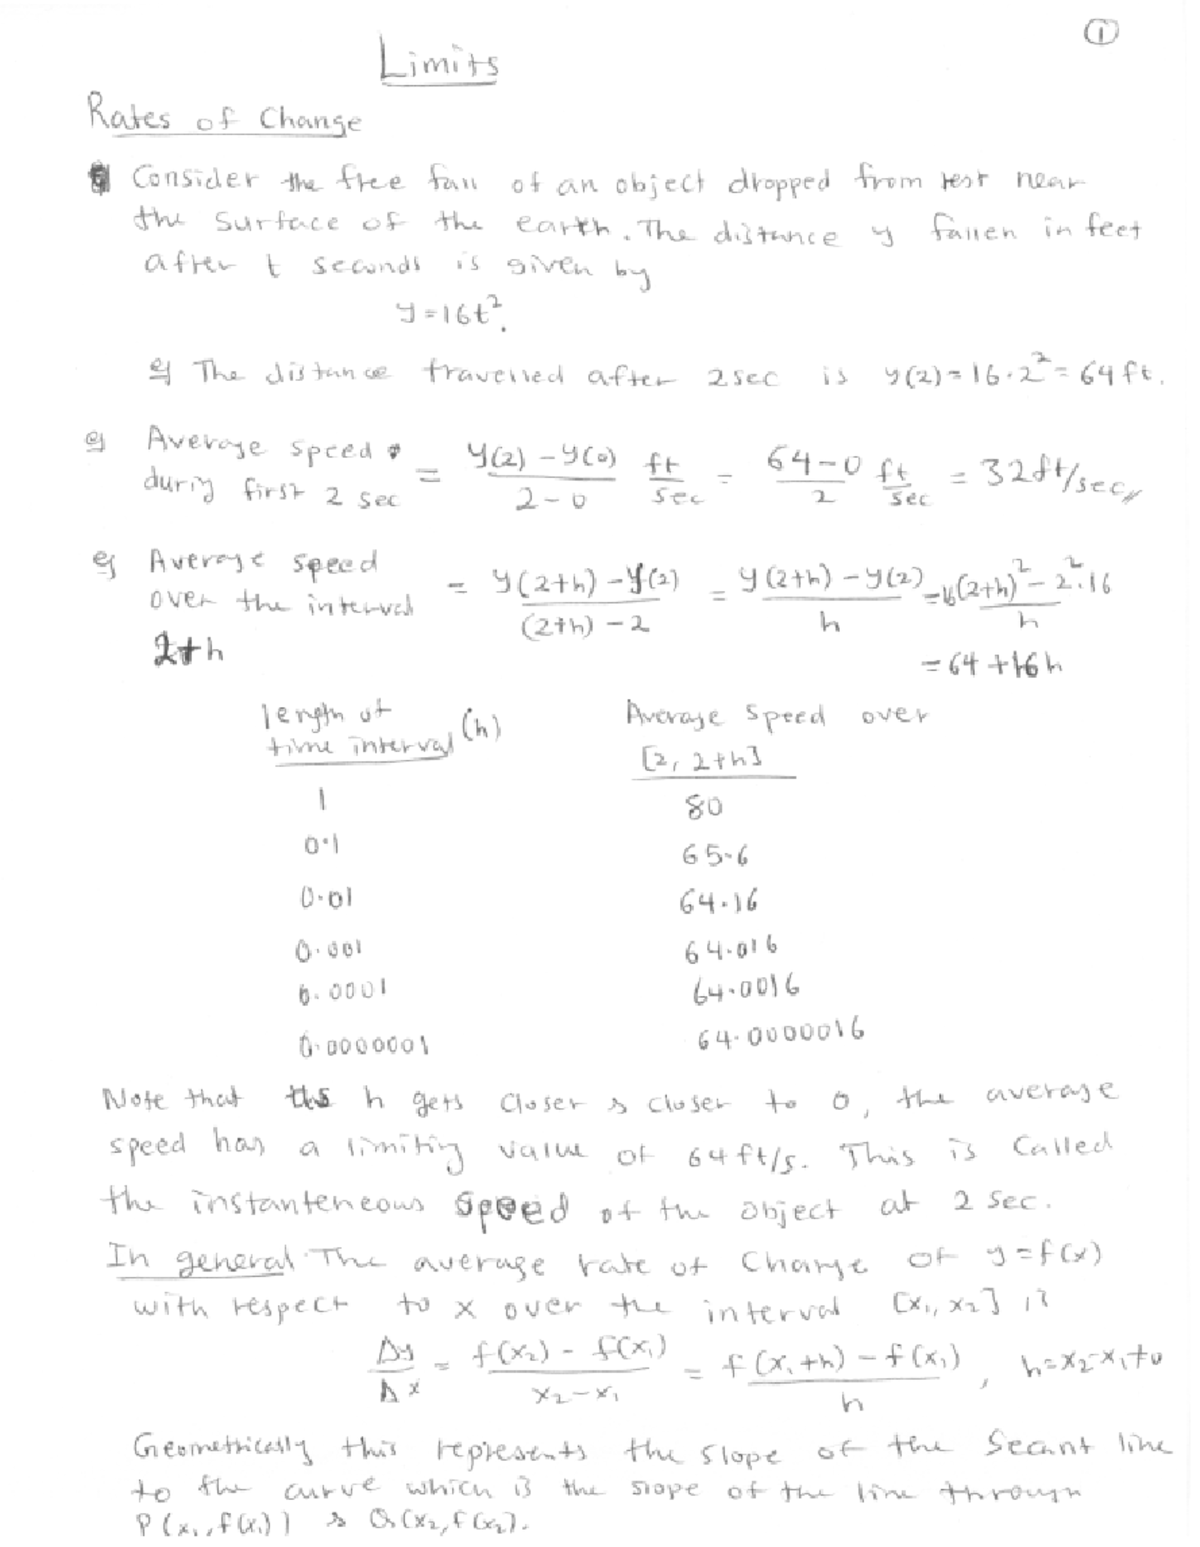 ①
Limits
Rates of Change
Consider the free fall of an object dropped from rest near
the surface of the earth. The distance y fallen in feet
after t seconds is given by
y = 16t².
eg The distance travelled after 2 sec is y(2) = 16·2² = 64 ft.
eg Average speed during first 2 sec = (y(2) - y(0))/(2 - 0) ft/sec = (64 - 0)/2 ft/sec = 32 ft/sec //
eg Average speed over the interval 2+h = (y(2+h) - y(2))/((2+h) - 2) = (y(2+h) - y(2))/h = (16(2+h)² - 2²·16)/h
= 64 + 16h
length of time interval (h) Average speed over [2, 2+h]
1 80
0.1 65.6
0.01 64.16
0.001 64.016
0.0001 64.0016
0.0000001 64.0000016
Note that h gets closer & closer to 0, the average
speed has a limiting value of 64 ft/s. This is called
the instanteneous speed of the object at 2 sec.
In general The average rate of change of y = f(x)
with respect to x over the interval [x₁, x₂] is
Δy/Δx = (f(x₂) - f(x₁))/(x₂ - x₁) = (f(x₁+h) - f(x₁))/h , h = x₂-x₁ ≠ 0
Geometrically this represents the slope of the secant line
to the curve which is the slope of the line through
P(x₁, f(x₁)) & Q(x₂, f(x₂)).